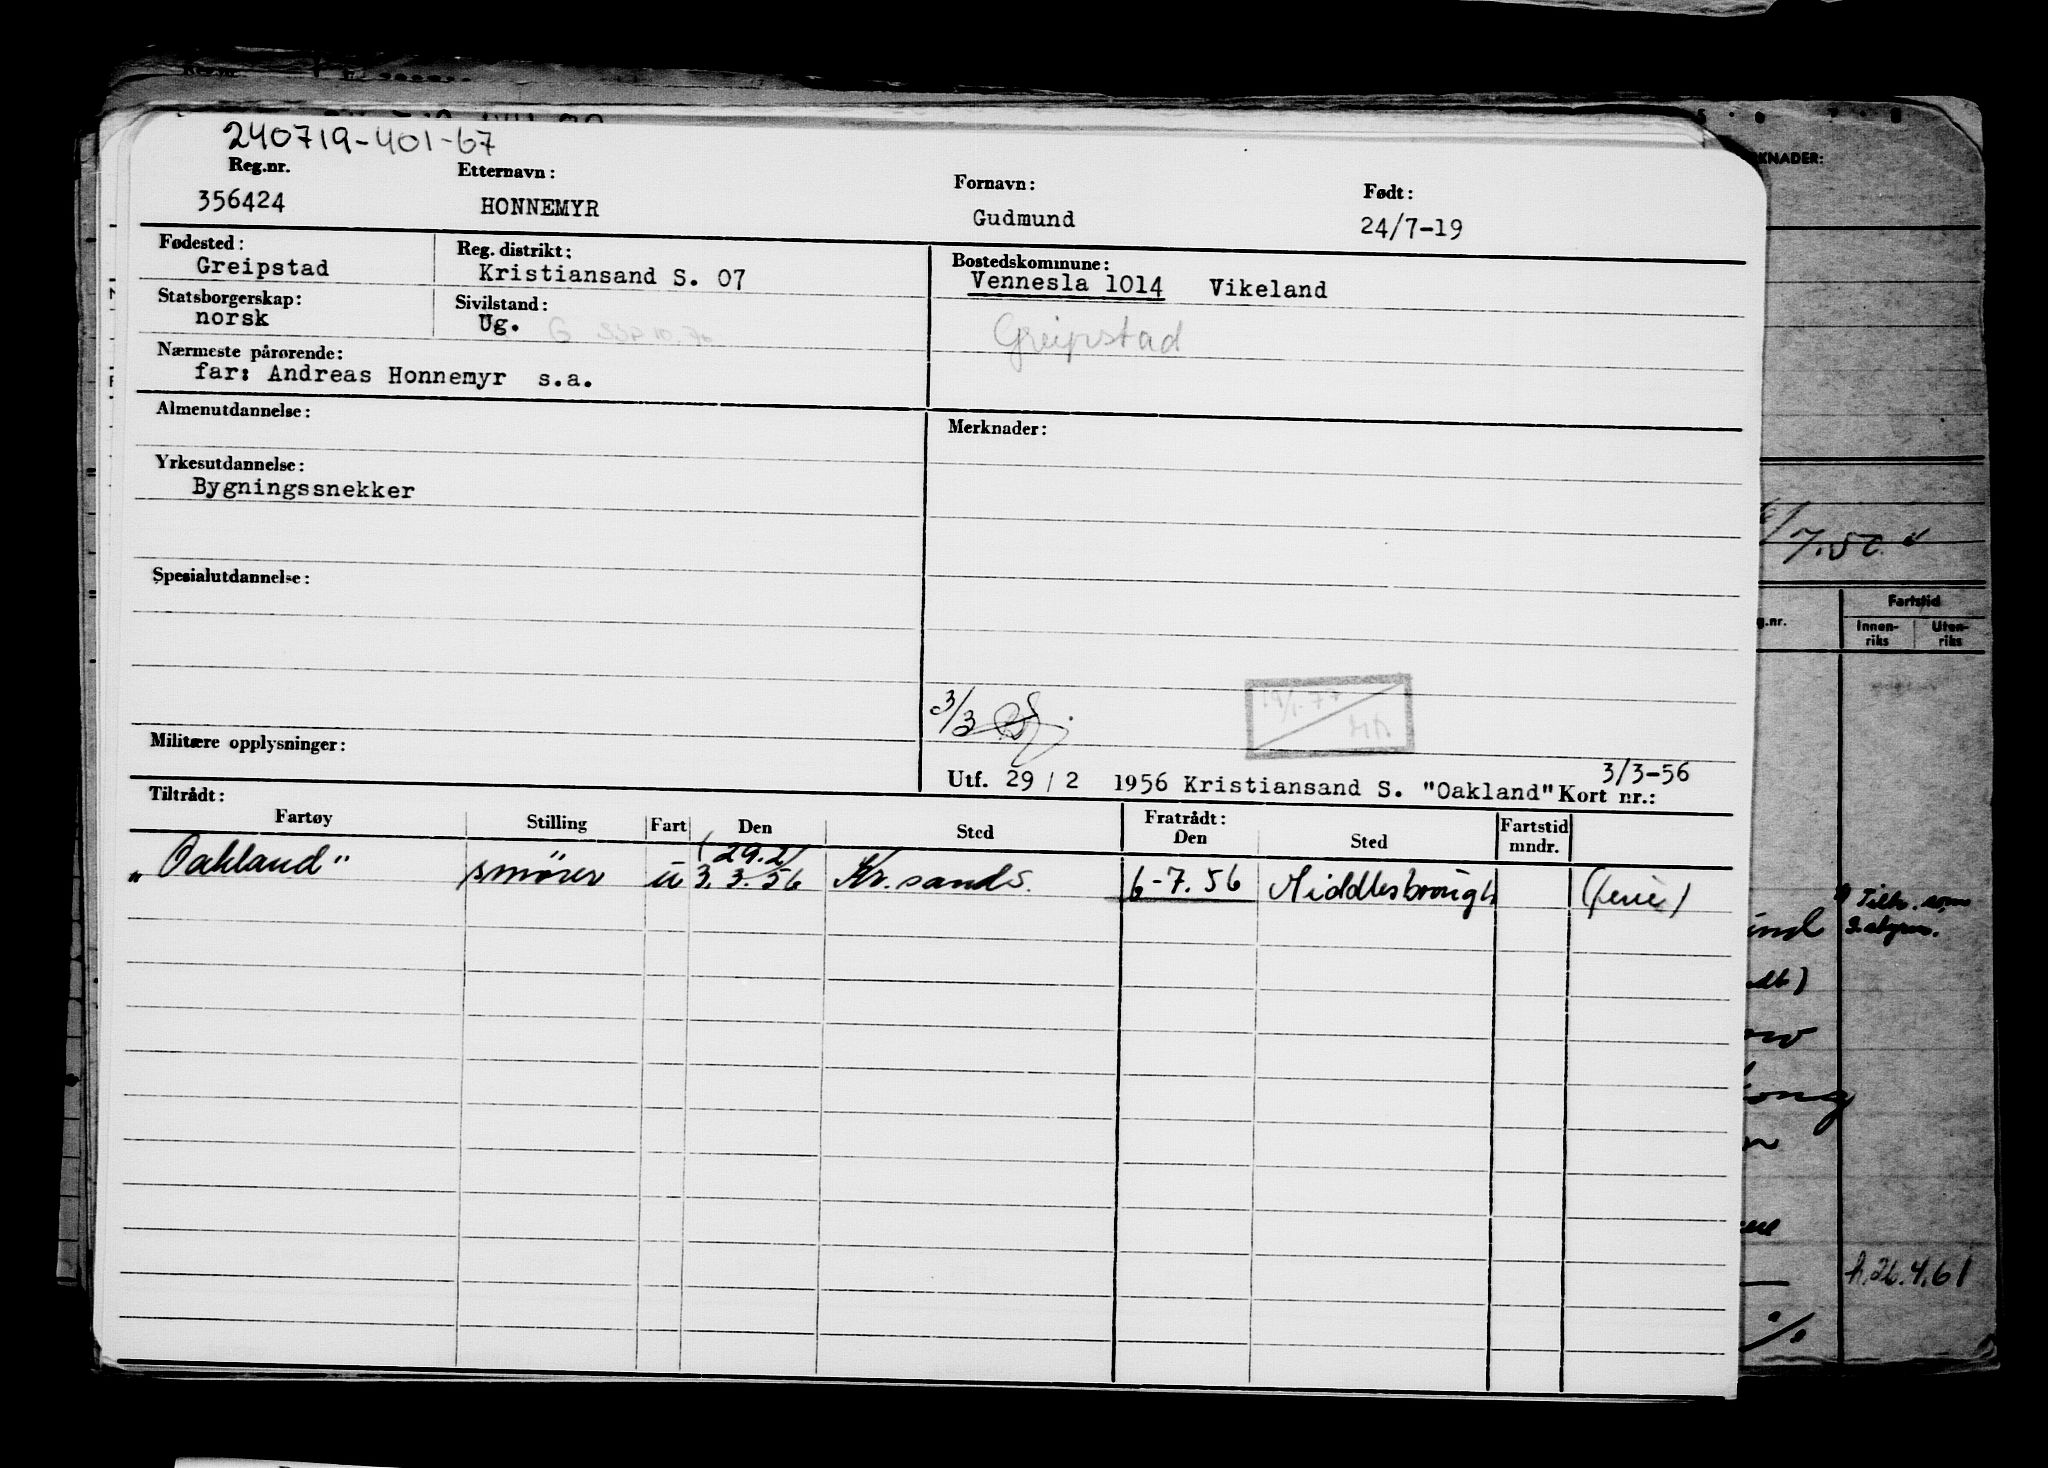 240719-401-67
Reg.nr. Etternavn: Fornavn: Født:
356424 HONNEMYR Gudmund 24/7-19
Fødested: Reg. distrikt: Bostedskommune:
Greipstad Kristiansand S. 07 Vennesla 1014 Vikeland
Statsborgerskap: Sivilstand:
norsk Ug. G
Greipstad
Nærmeste pårørende:
far: Andreas Honnemyr s.a.
Almenutdannelse: Merknader:
Yrkesutdannelse:
Bygningssnekker
Spesialutdannelse:
3/3
Militære opplysninger:
3/3-56
Utf. 29 / 2 1956 Kristiansand S. "Oakland" Kort nr.:
Tiltrådt: Fratrådt:
Fartøy Stilling Fart Den Sted Den Sted Fartstid mndr.
(29.2)
"Oakland" smører u 3.3.56 Kr.sand S. 6-7.56 Middlesbrough (ferie)
KNADER:
7.50
g.nr. Fartstid
Innen-riks Uten-riks
Tiltr. som
2. styrm.
h.26.4.61